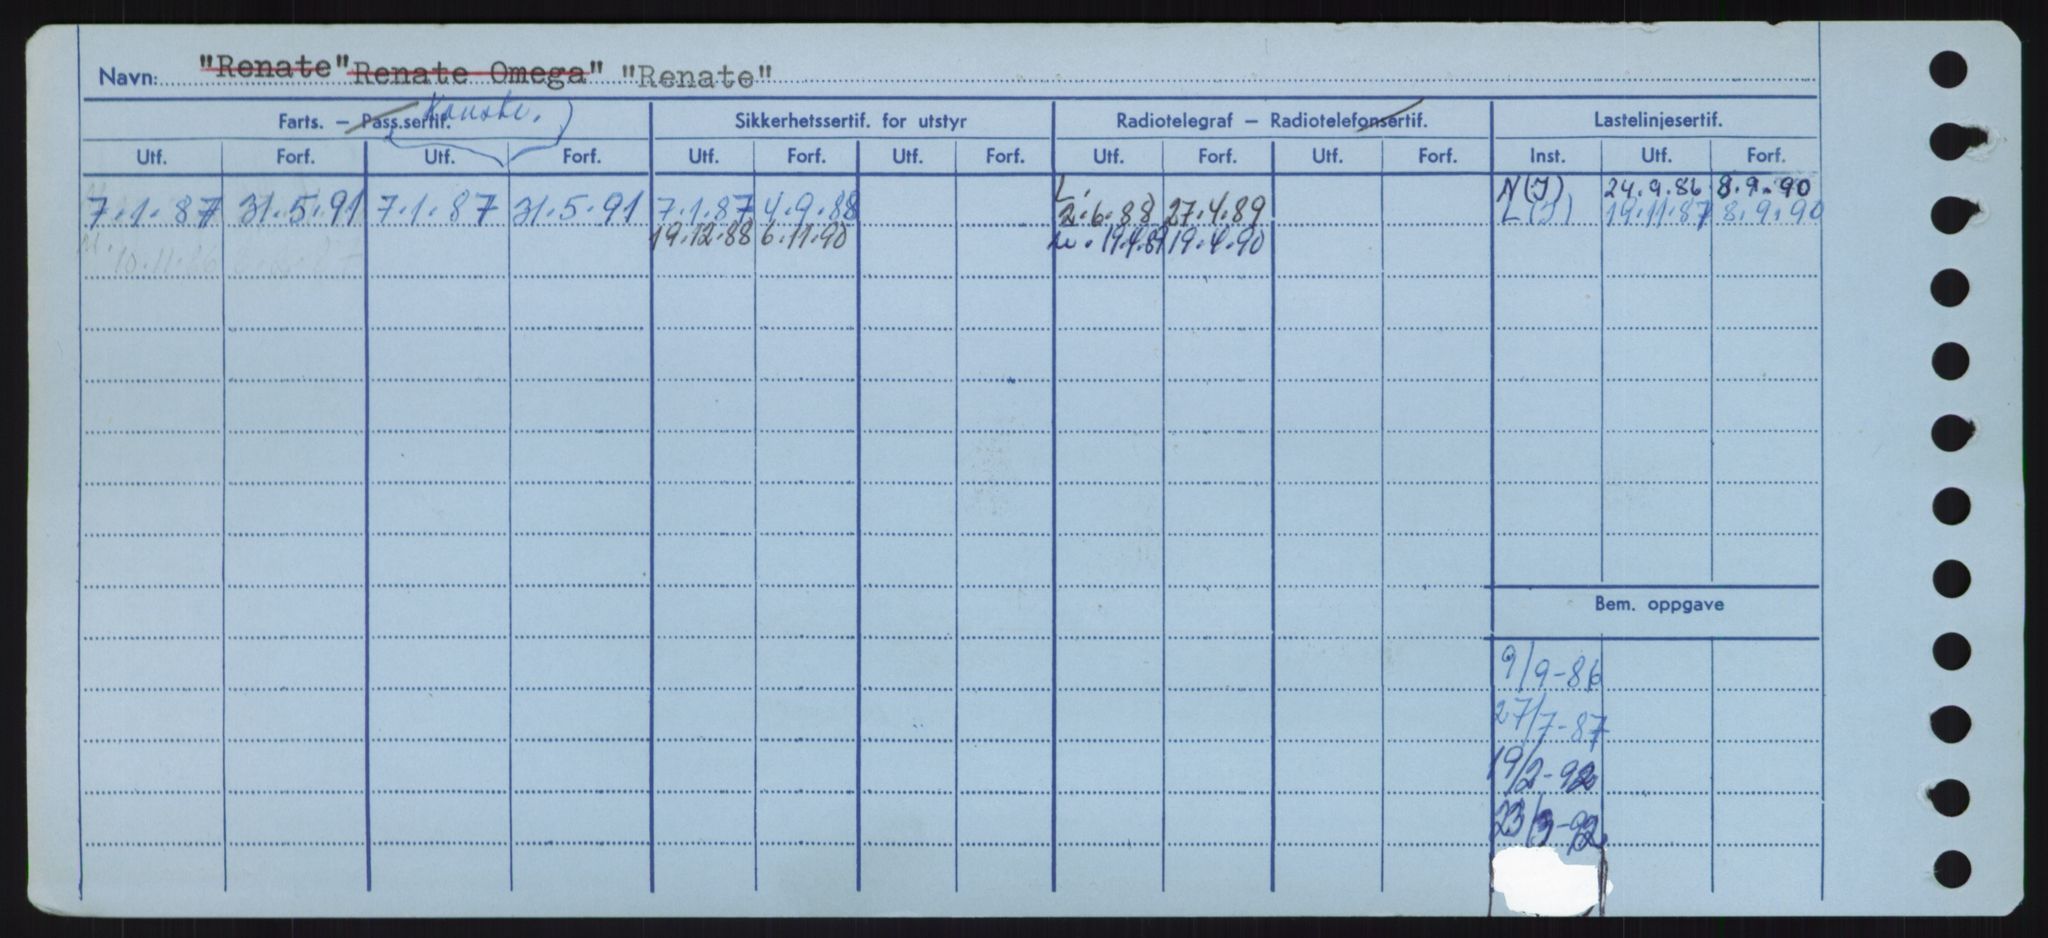 Navn: "Renate" Renate Omega" "Renate"
Farts. — Pass.sertif. Sikkerhetssertif. for utstyr Radiotelegraf — Radiotelefonsertif. Lastelinjesertif.
Utf. Forf. Utf. Forf. Utf. Forf. Utf. Forf. Utf. Forf. Utf. Forf. Inst. Utf. Forf.
L. N(I) 24.9.86 8.9.90
7.1.87 31.5.91 7.1.87 31.5.91 7.1.87 4.9.88 2.6.88 27.4.89 L(I) 19.11.87 8.9.90
10.11.86 19.12.88 6.11.90 19.4.89 19.4.90
Bem. oppgave
9/9-86
27/7-87
19/2-92
23/3-92